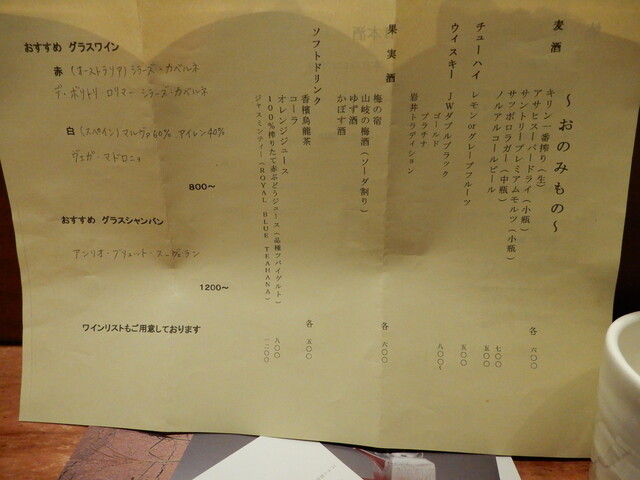 ～おのみもの～
麦酒
キリン一番搾り（生）
アサヒスーパードライ（小瓶）
サントリープレミアムモルツ（小瓶）
サッポロラガー（中瓶）
ノルアルコールビール
各 六〇〇
七〇〇
五〇〇
チューハイ
レモン or グレープフルーツ
五〇〇
ウイスキー
JWダブルブラック
ゴールド
プラチナ
岩井トラディション
八〇〇～
果実酒
梅の宿
山崎の梅酒（ソーダ割り）
ゆず酒
かぼす酒
各 六〇〇
ソフトドリンク
香檳烏龍茶
コーラ
オレンジジュース
100％搾りたて赤ぶどうジュース（品種ツバイゲルト）
ジャスミンティー（ROYAL BLUE TEAHANA）
各 五〇〇
八〇〇
一二〇〇
おすすめ グラスワイン
赤 （オーストラリア）シラーズ・カベルネ
デ・ボリトリ・ロリマー シラーズ・カベルネ
白 （スペイン）マルヴァ60％ アイレン40％
ヴェガ・マドロニョ
800～
おすすめ グラスシャンパン
アンリオ・ブリュット・スーヴェラン
1200～
ワインリストもご用意しております